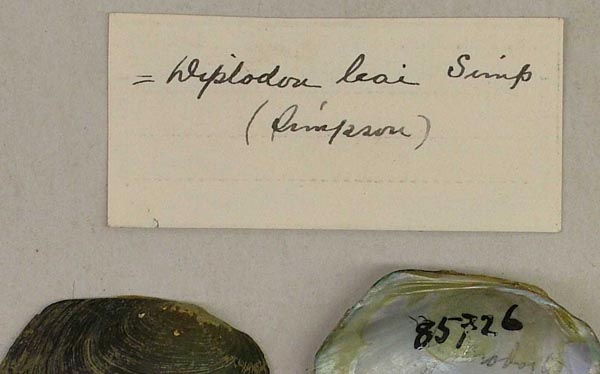 = Diplodon leai Simp
(Simpson)
85,726